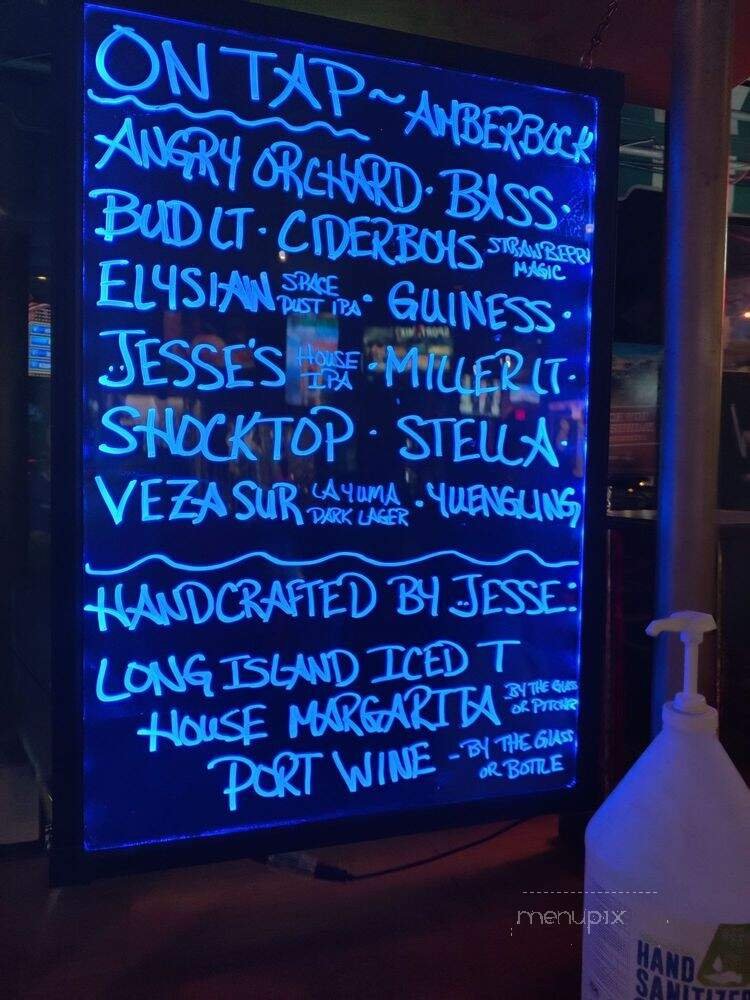 ON TAP ~ AMBERBOCK
ANGRY ORCHARD · BASS ·
BUD LT · CIDERBOYS STRAWBERRY MAGIC
ELYSIAN SPACE DUST IPA · GUINESS ·
JESSE'S HOUSE IPA · MILLER LT ·
SHOCKTOP · STELLA ·
VEZA SUR LA YUMA DARK LAGER · YUENGLING
HANDCRAFTED BY JESSE:
LONG ISLAND ICED T
HOUSE MARGARITA BY THE GLASS OR PITCHER
PORT WINE - BY THE GLASS OR BOTTLE
menupix
HAND
SANITIZER